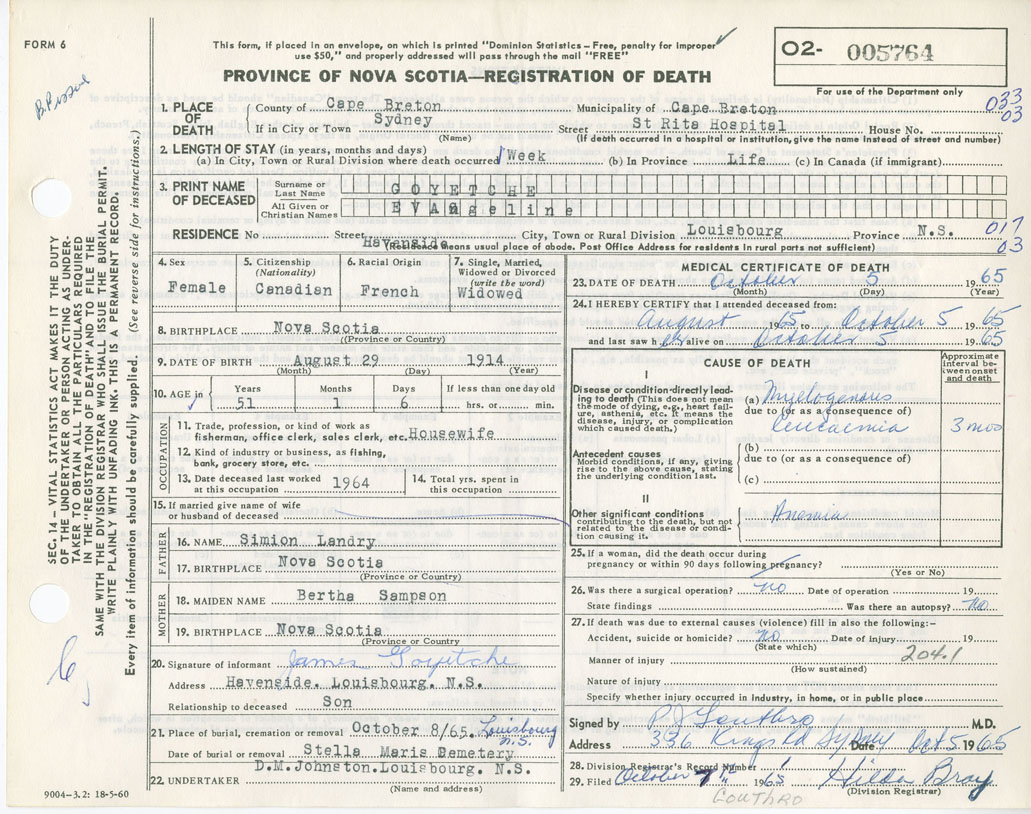 FORM 6
This form, if placed in an envelope, on which is printed "Dominion Statistics – Free, penalty for improper
use $50," and properly addressed will pass through the mail "FREE"
O2- 005764
PROVINCE OF NOVA SCOTIA—REGISTRATION OF DEATH
For use of the Department only
1. PLACE OF DEATH
County of Cape Breton Municipality of Cape Breton 033
If in City or Town Sydney Street St Rita Hospital House No. 03
(Name) (If death occurred in a hospital or institution, give the name instead of street and number)
2. LENGTH OF STAY (in years, months and days)
(a) In City, Town or Rural Division where death occurred 1 Week (b) In Province Life (c) In Canada (if immigrant)
3. PRINT NAME OF DECEASED
Surname or Last Name GOYETCHE
All Given or Christian Names EVANgeline
RESIDENCE No Street Havenside City, Town or Rural Division Louisbourg Province N.S. 017
(Residence means usual place of abode. Post Office Address for residents in rural parts not sufficient) 03
4. Sex Female
5. Citizenship (Nationality) Canadian
6. Racial Origin French
7. Single, Married, Widowed or Divorced (write the word) Widowed
8. BIRTHPLACE Nova Scotia
(Province or Country)
9. DATE OF BIRTH August 29 1914
(Month) (Day) (Year)
10. AGE in Years 51 Months 1 Days 6 If less than one day old hrs. or min.
OCCUPATION
11. Trade, profession, or kind of work as fisherman, office clerk, sales clerk, etc. Housewife
12. Kind of industry or business, as fishing, bank, grocery store, etc.
13. Date deceased last worked at this occupation 1964
14. Total yrs. spent in this occupation
15. If married give name of wife or husband of deceased
FATHER
16. NAME Simion Landry
17. BIRTHPLACE Nova Scotia
(Province or Country)
MOTHER
18. MAIDEN NAME Bertha Sampson
19. BIRTHPLACE Nova Scotia
(Province or Country)
20. Signature of informant James Goyetche
Address Havenside. Louisbourg. N.S.
Relationship to deceased Son
21. Place of burial, cremation or removal October 8/65 Louisbourg N.S.
Date of burial or removal Stella Maris Cemetery
22. UNDERTAKER D.M.Johnston.Louisbourg. N.S.
(Name and address)
9004-3.2: 18-5-60
MEDICAL CERTIFICATE OF DEATH
23. DATE OF DEATH October 5 1965
(Month) (Day) (Year)
24. I HEREBY CERTIFY that I attended deceased from:
August 1965 to October 5 1965
and last saw her alive on October 5 1965
CAUSE OF DEATH
Approximate interval between onset and death
I
Disease or condition directly leading to death (This does not mean the mode of dying, e.g., heart failure, asthenia, etc. It means the disease, injury, or complication which caused death.)
(a) Myelogenous
due to (or as a consequence of)
leucaemia 3 mos
Antecedent causes
Morbid conditions, if any, giving rise to the above cause, stating the underlying condition last.
(b)
due to (or as a consequence of)
(c)
II
Other significant conditions contributing to the death, but not related to the disease or condition causing it.
Anemia
25. If a woman, did the death occur during pregnancy or within 90 days following pregnancy?
(Yes or No)
26. Was there a surgical operation? no Date of operation 19
State findings Was there an autopsy? no
27. If death was due to external causes (violence) fill in also the following:-
Accident, suicide or homicide? no Date of injury 19
(State which)
204.1
Manner of injury
(How sustained)
Nature of injury
Specify whether injury occurred in industry, in home, or in public place
Signed by P J Gouthro M.D.
Address 336 Kings Rd Sydney Date Oct 5 1965
28. Division Registrar's Record Number
29. Filed October 7th 1965 Hilda Bray
(Division Registrar)
GOUTHRO
SEC. 14 – VITAL STATISTICS ACT MAKES IT THE DUTY
OF THE UNDERTAKER OR PERSON ACTING AS UNDER-
TAKER TO OBTAIN ALL THE PARTICULARS REQUIRED
IN THE "REGISTRATION OF DEATH" AND TO FILE THE
SAME WITH THE DIVISION REGISTRAR WHO SHALL ISSUE THE BURIAL PERMIT.
WRITE PLAINLY WITH UNFADING INK. THIS IS A PERMANENT RECORD.
Every item of information should be carefully supplied. (See reverse side for instructions.)
6